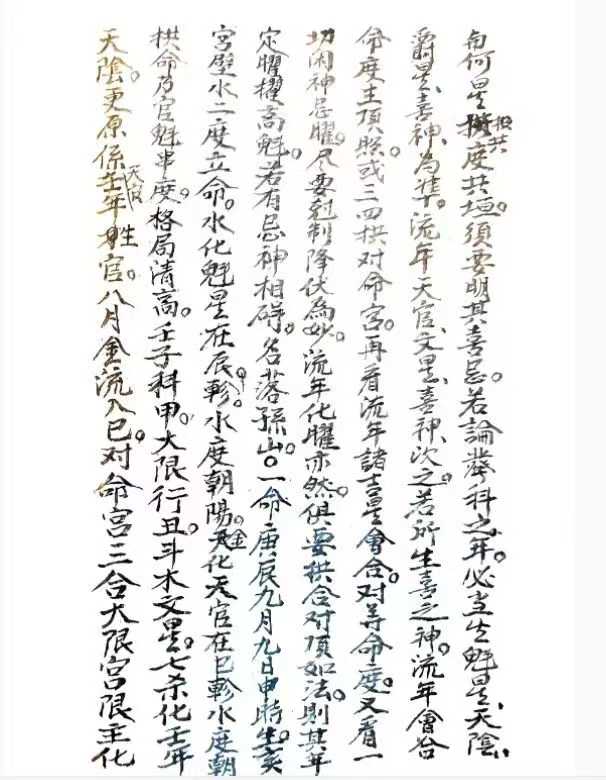 何星拱度共垣。須要明其喜忌。若論發科之年。必当生魁星、天陰、
爵星、喜神、為準。流年天官、文星、喜神、次之。若所生喜之神。流年會合
命度主頂照或三四拱对命宮。再看流年諸吉星會合。对着命度。又看一
切困神忌曜。尽要尅制降伏為妙。流年化曜亦然。俱要拱合对頂如法。則其年
定曜擢高魁。若有忌神相碍。名落孫山。○一命庚辰九月九日申時生。亥
宮壁水二度立命。水化魁星在辰軫。水度朝陽。金化天官在巳軫水度朝
拱命乃官魁串度。格局清高。壬子科甲。大限行丑。斗木文星。七杀化壬年
天陰。更原係壬年天官姓官。八月金流入巳。对命宮三合大限宮限主化